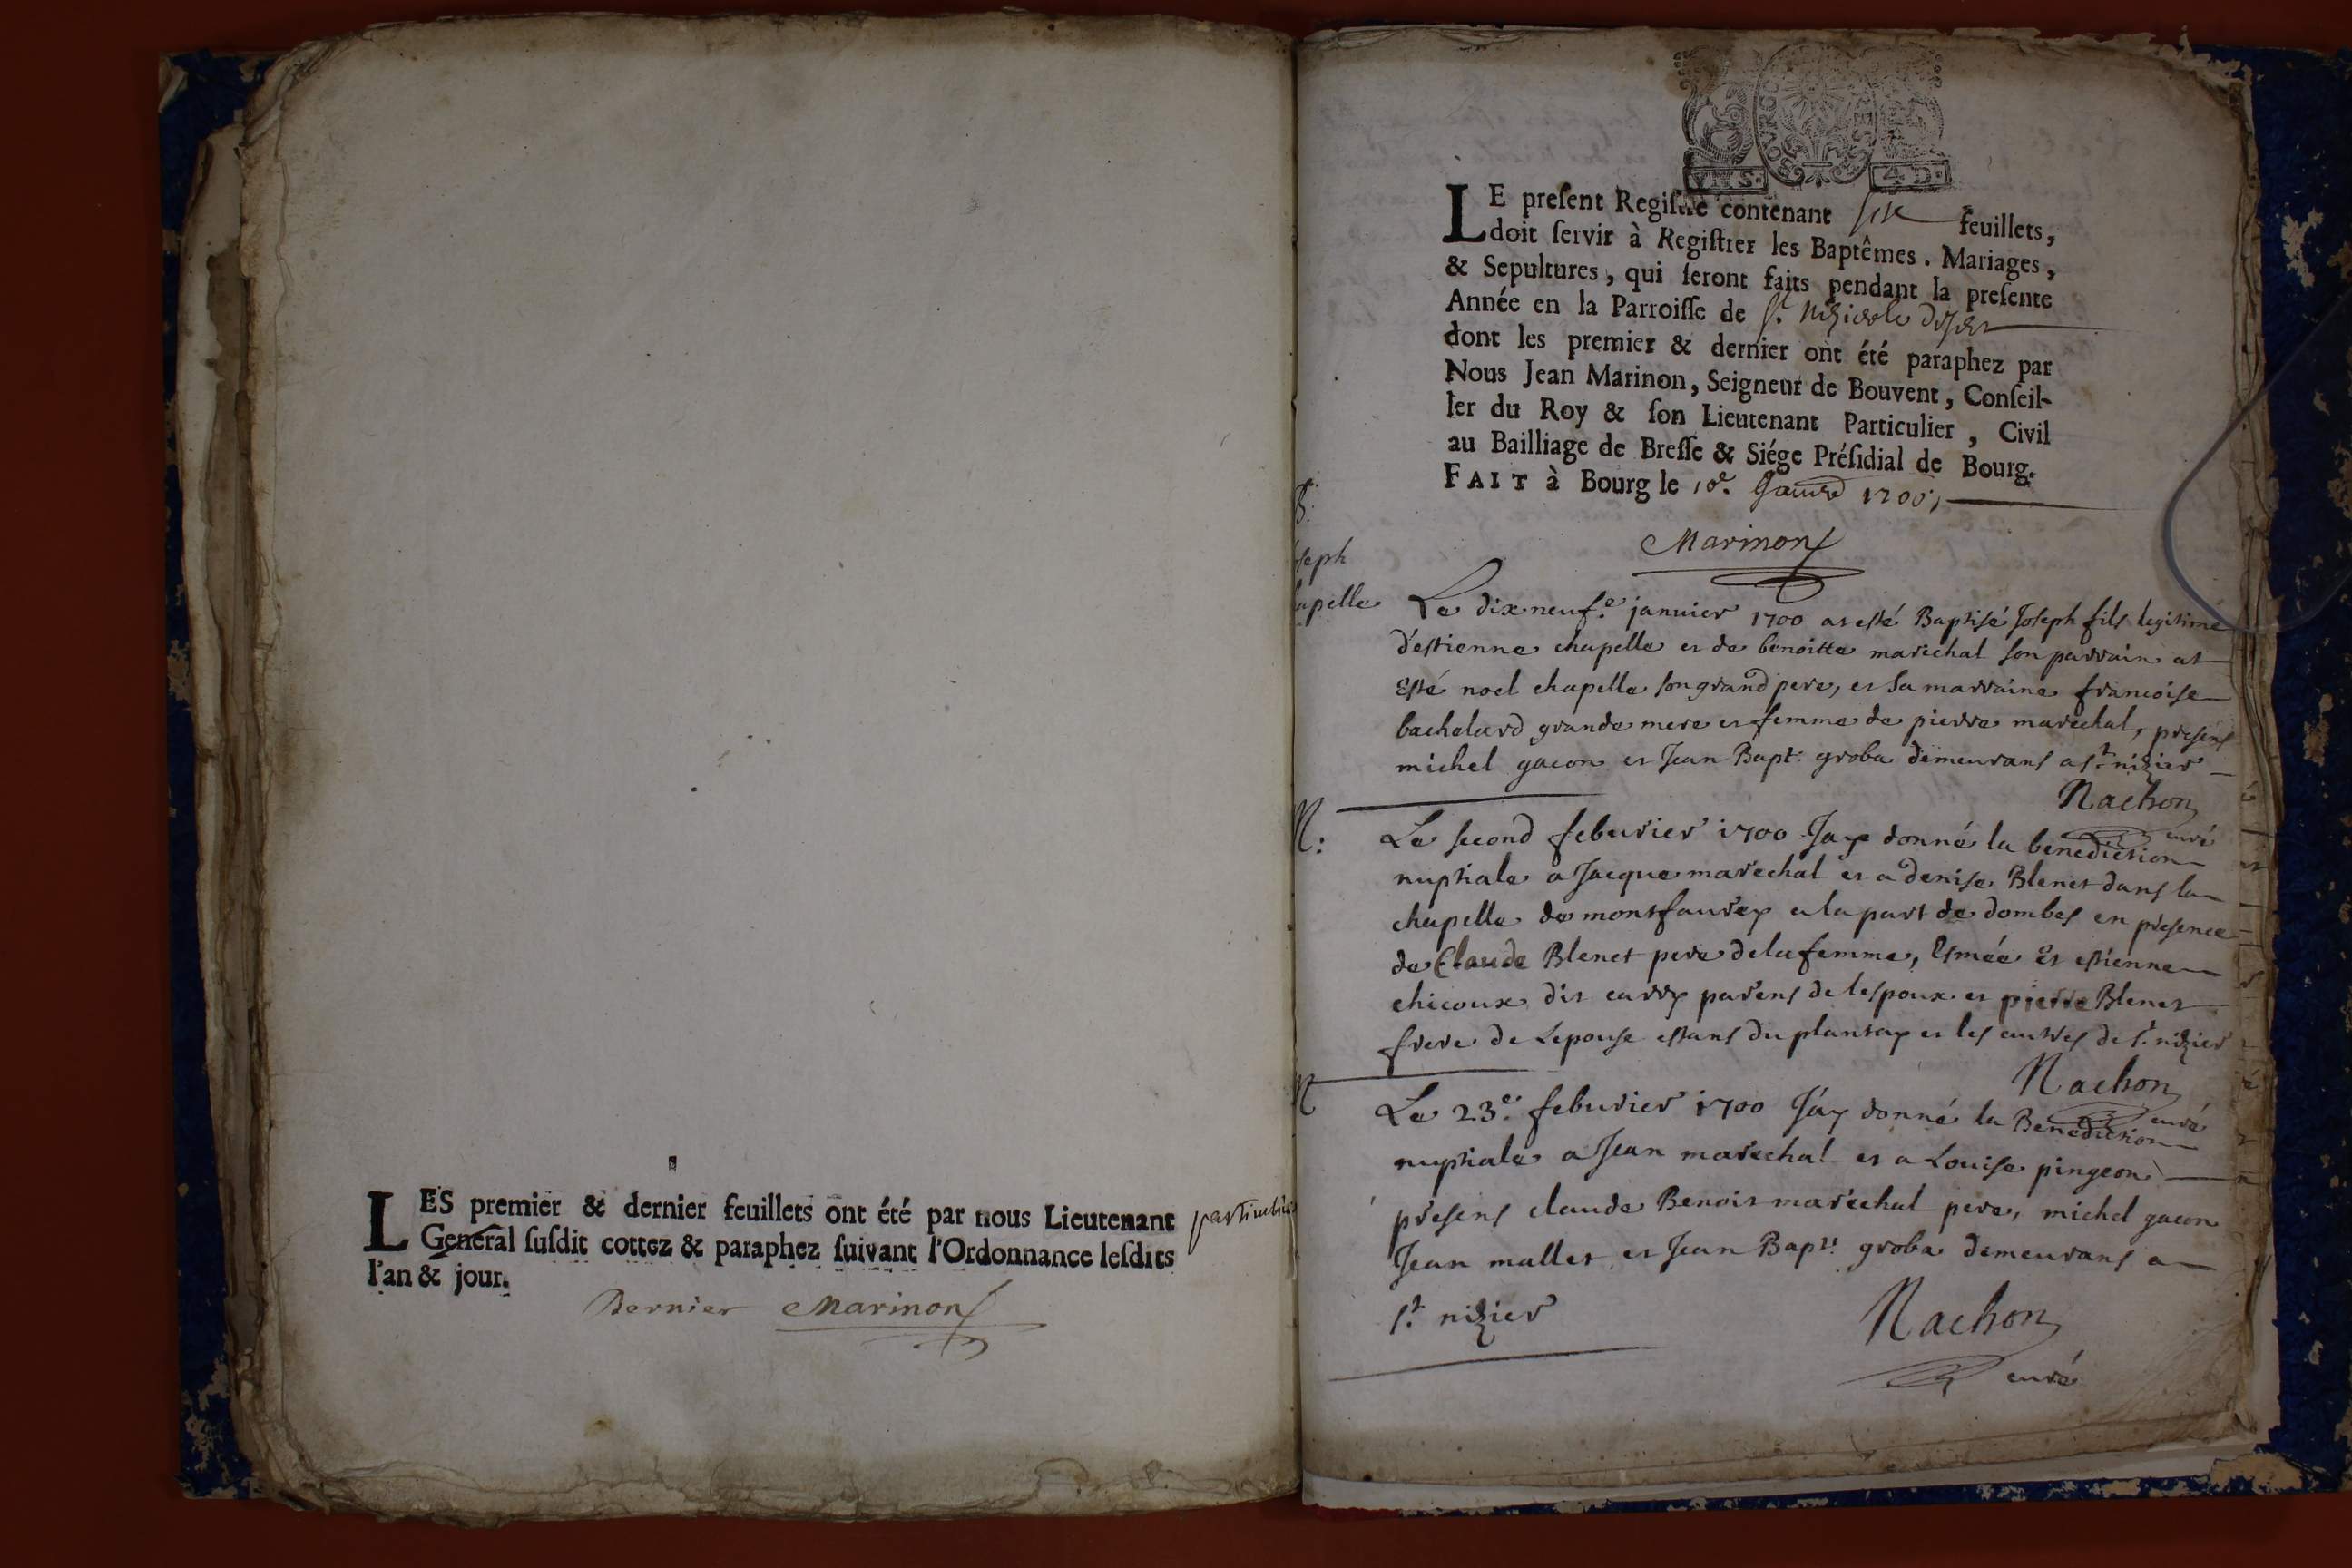 LES premier & dernier feuillets ont été par nous Lieutenant particulier
General ſuſdit cottez & paraphez ſuivant l'Ordonnance leſdits
l'an & jour.
Dernier Marinon
VNS. 4 D.
LE preſent Regiſtre contenant six feuillets,
doit ſervir à Regiſtrer les Baptêmes. Mariages,
& Sepultures, qui ſeront faits pendant la preſente
Année en la Parroiſſe de St. Nizier le Desert
dont les premier & dernier ont été paraphez par
Nous Jean Marinon, Seigneur de Bouvent, Conſeil-
ler du Roy & ſon Lieutenant Particulier, Civil
au Bailliage de Breſſe & Siége Préſidial de Bourg.
FAIT à Bourg le 10e. Janvr 1700,
Marinon
B.
seph
apelle
Le dix neufe. januier 1700 at esté Baptisé Joseph fils legitime
d'estienne chapelle et de benoitte marechal son parrain at
Esté noel chapelle son grand pere, et sa marraine francoise
bachelard grande mere et femme de pierre marechal, presens
michel gacon et Jean Bapt: groba demeurans a st nizier
Nachon
curé
N:
Le second feburier 1700 Jay donné la benediction
nuptiale a Jacque marechal et a denise Blenet dans la
chapelle de montfaurey a la part de dombes en presence
de Claude Blenet pere de la femme, Esmée Et estienne
chicoux dit curry parens de lespoux et pierre Blenet
frere de Lepouse estans du plantay et les autres de st. nizier
Nachon
curé
N
Le 23e. feburier 1700 Jáy donné la Benediction
nuptiale a Jean marechal et a Louise pingeon
presens claude Benoit marechal pere, michel gacon
Jean mallet et Jean Bapt: groba demeurans a
st. nizier
Nachon
curé